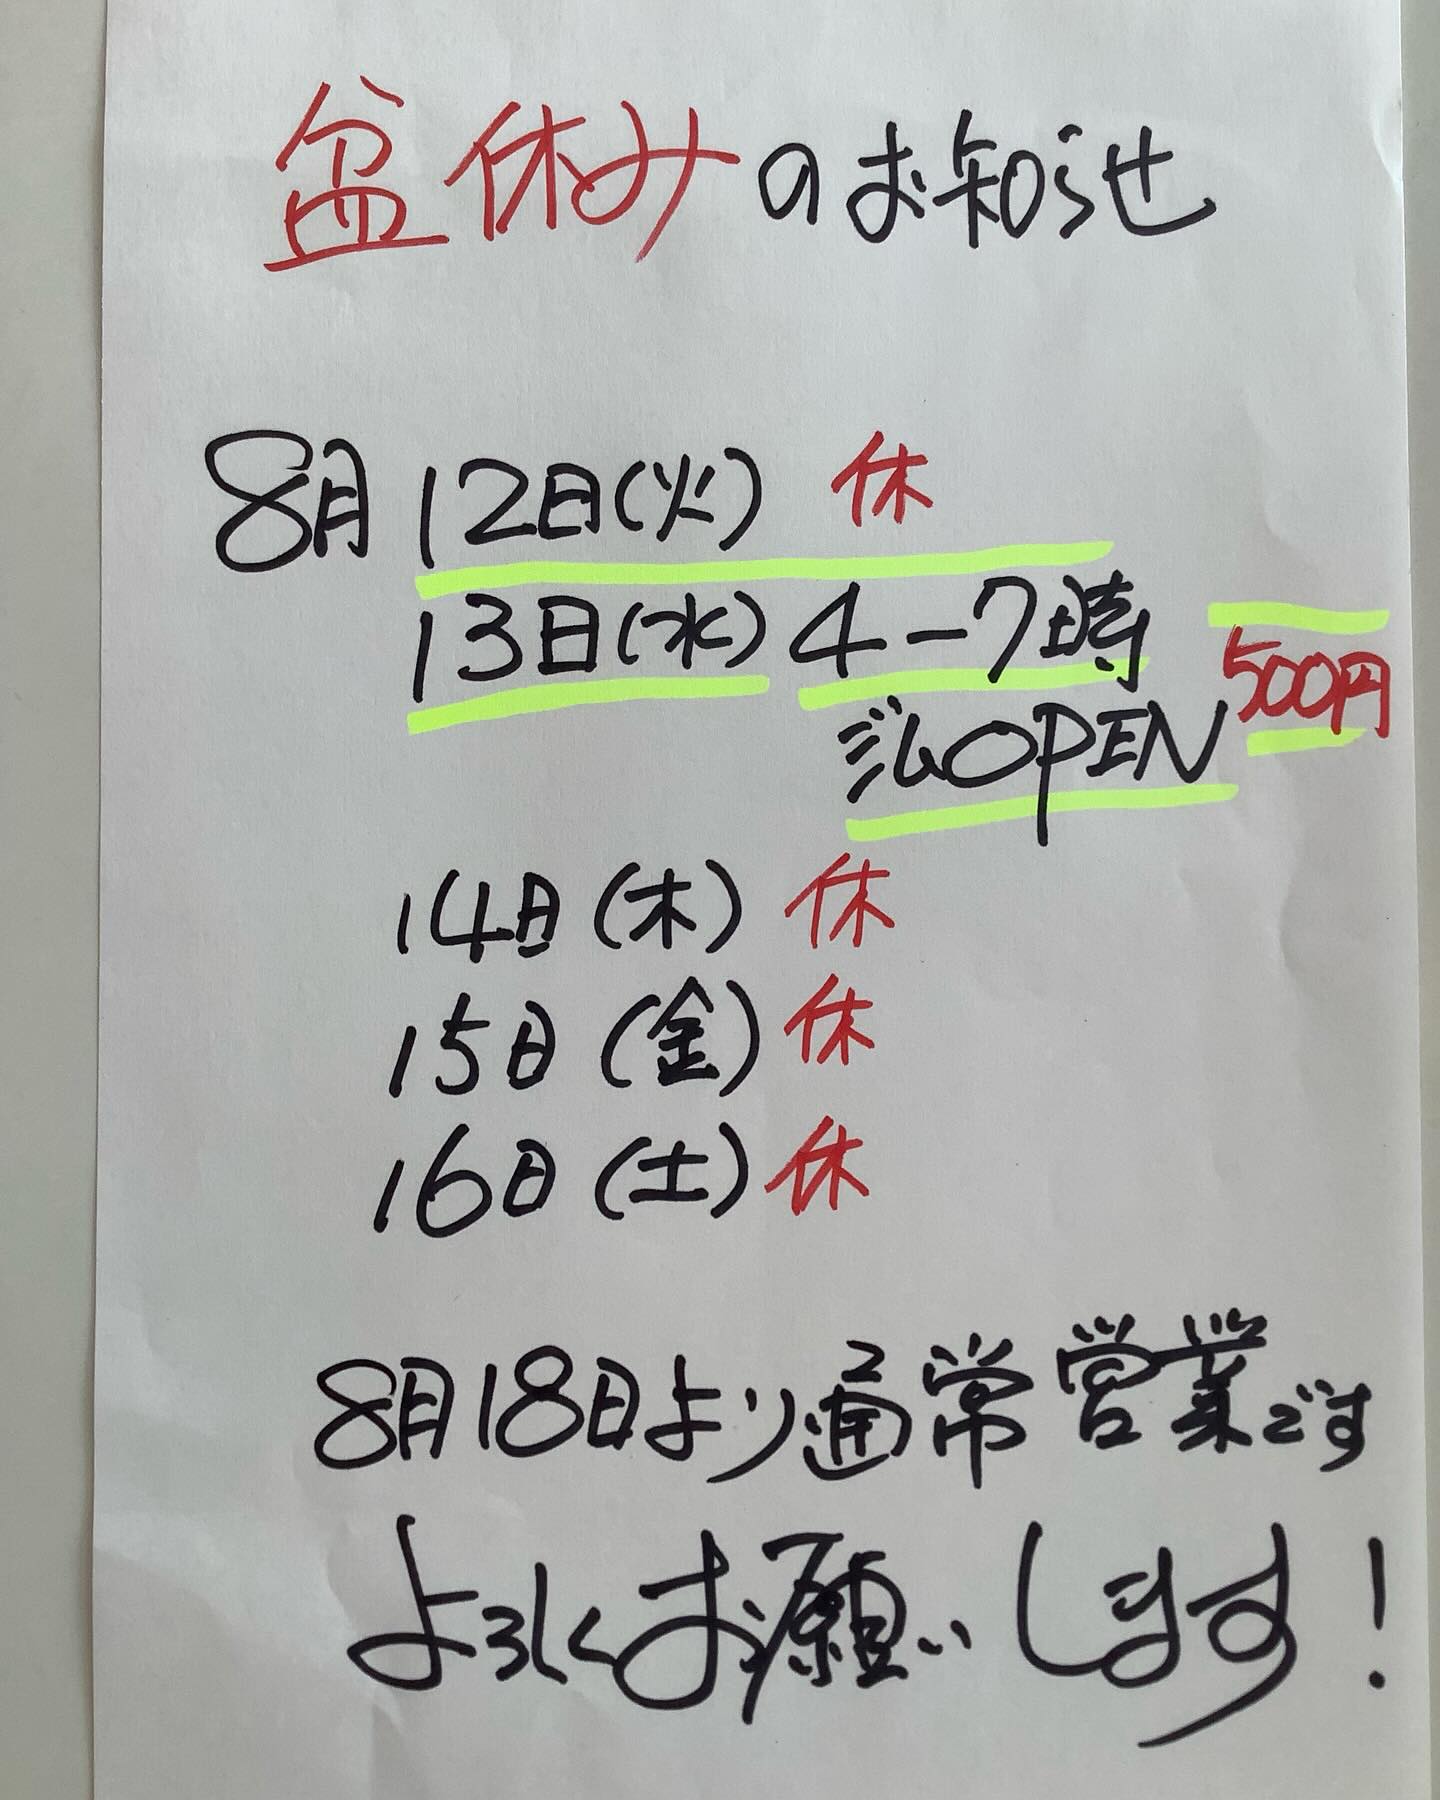 盆休みのお知らせ
8月12日(火) 休
13日(水) 4-7時 500円
ジムOPEN
14日(木) 休
15日(金) 休
16日(土) 休
8月18日より通常営業です
よろしくお願いします!